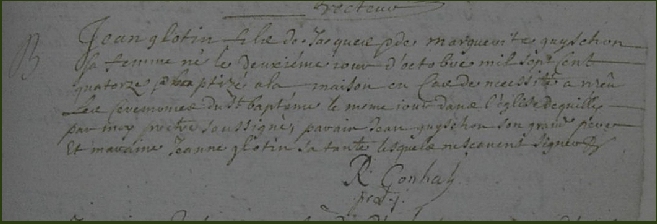 recteur
B
Jean glotin fils de Jacques et de marguerite guyschon
sa femme né le deuxième jour d'octobre mil sept cent
quatorze baptizé a la maison en cas de necessité a receu
Les ceremonies du st baptême le meme jour dans l'église de guilly
par moy prêtre soussigné, parain Jean guyschon son grand père
Et maraine Jeanne glotin sa tante lesquels ne scavent signer
R Gonhal